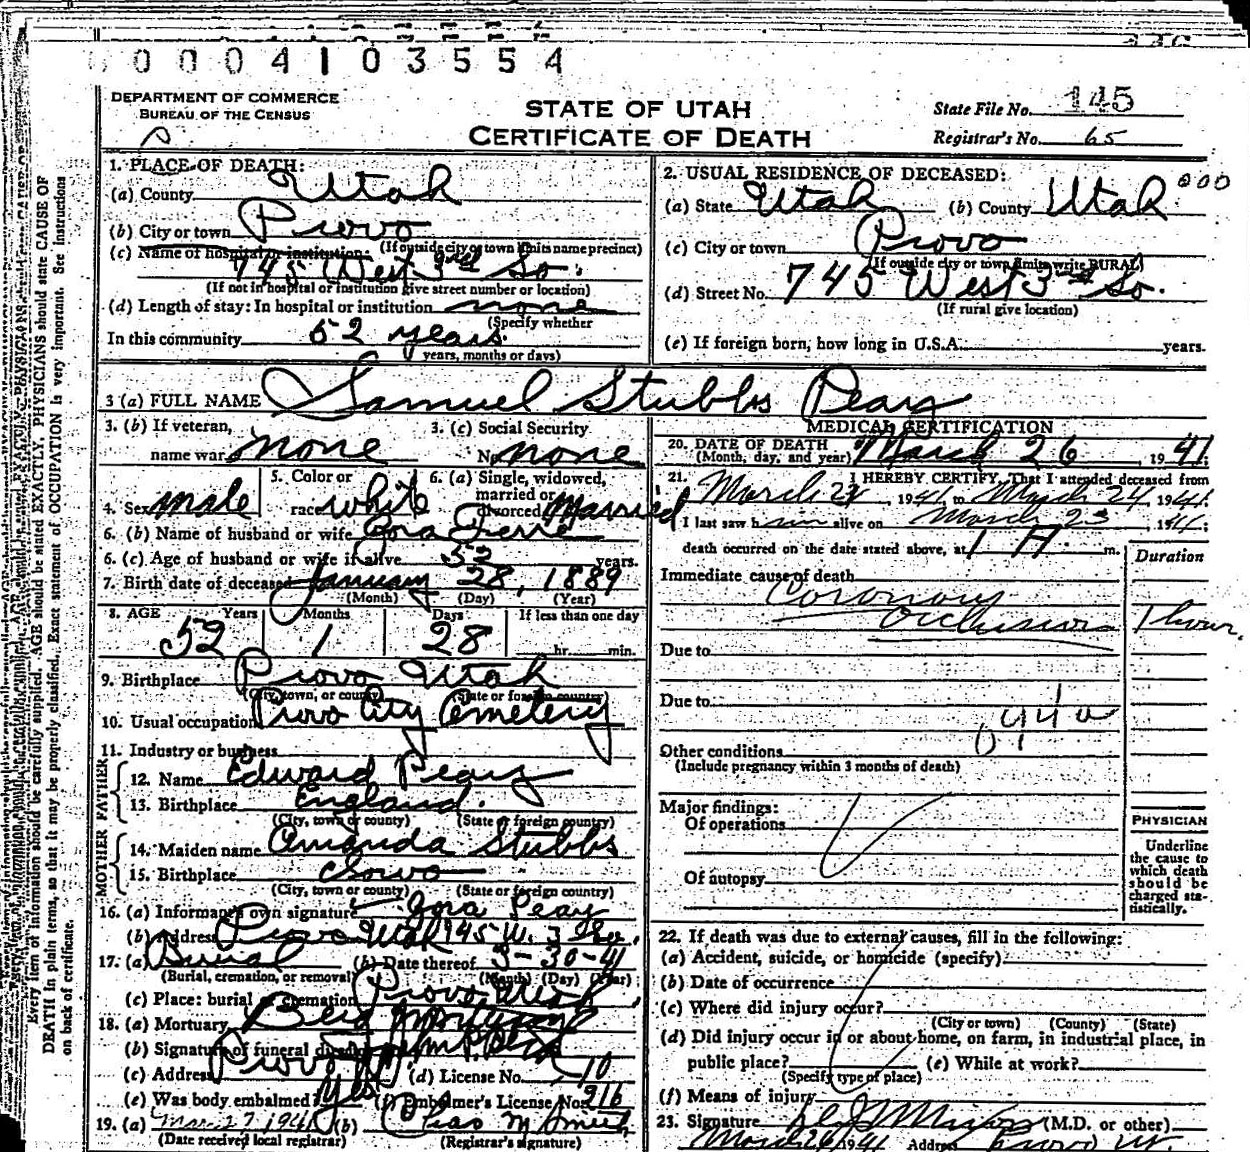 0 0 0 4 1 0 3 5 5 4
DEPARTMENT OF COMMERCE
BUREAU OF THE CENSUS
STATE OF UTAH
CERTIFICATE OF DEATH
State File No. 145
Registrar's No. 65
1. PLACE OF DEATH:
(a) County Utah
(b) City or town Provo
(If outside city or town limits name precinct)
(c) Name of hospital or institution:
745 West 3rd So.
(If not in hospital or institution give street number or location)
(d) Length of stay: In hospital or institution none
(Specify whether
In this community 52 years
years, months or days)
2. USUAL RESIDENCE OF DECEASED:
(a) State Utah (b) County Utah 000
(c) City or town Provo
(If outside city or town limits write RURAL)
(d) Street No. 745 West 3rd So.
(If rural give location)
(e) If foreign born, how long in U.S.A. years.
3 (a) FULL NAME Samuel Stubbs Peay
3. (b) If veteran, name war none
3. (c) Social Security No. none
4. Sex male
5. Color or race white
6. (a) Single, widowed, married or divorced Married
6. (b) Name of husband or wife
6. (c) Age of husband or wife if alive 52 years.
7. Birth date of deceased January 28, 1889
(Month) (Day) (Year)
8. AGE Years Months Days If less than one day
52 1 28 hr. min.
9. Birthplace Provo Utah
(City, town, or county) (State or foreign country)
10. Usual occupation Provo City Cemetery
11. Industry or business
FATHER
12. Name Edward Peay
13. Birthplace England.
(City, town or county) (State or foreign country)
MOTHER
14. Maiden name Amanda Stubbs
15. Birthplace Iowa
(City, town or county) (State or foreign country)
16. (a) Informant's own signature Peay
(b) Address Provo Utah 745 W. 3 So.
17. (a) Burial (b) Date thereof 3-30-41
(Burial, cremation, or removal) (Month) (Day) (Year)
(c) Place: burial or cremation Provo Utah
18. (a) Mortuary Berg Mortuary
(b) Signature of funeral director
(c) Address Provo (d) License No. 10
(e) Was body embalmed? Yes (f) Embalmer's License No. 216
19. (a) Mar 27 1941 (b) Chas M Smith
(Date received local registrar) (Registrar's signature)
MEDICAL CERTIFICATION
20. DATE OF DEATH March 26, 1941
(Month, day, and year)
21. I HEREBY CERTIFY, That I attended deceased from
March 1941 to March 24 1941
I last saw him alive on March 23, 1941;
death occurred on the date stated above, at 1 A. m.
Duration
Immediate cause of death
Coronary
Occlusion 1 hour.
Due to
Due to
Other conditions
(Include pregnancy within 3 months of death)
Major findings:
Of operations
Of autopsy
PHYSICIAN
Underline the cause to which death should be charged statistically.
22. If death was due to external causes, fill in the following:
(a) Accident, suicide, or homicide (specify)
(b) Date of occurrence
(c) Where did injury occur?
(City or town) (County) (State)
(d) Did injury occur in or about home, on farm, in industrial place, in
public place? (e) While at work?
(Specify type of place)
(f) Means of injury
23. Signature (M.D. or other)
March 26 1941 Address Provo Ut.
Every item of information should be carefully supplied. AGE should be stated EXACTLY. PHYSICIANS should state CAUSE OF
DEATH in plain terms, so that it may be properly classified. Exact statement of OCCUPATION is very important. See Instructions
on back of certificate.